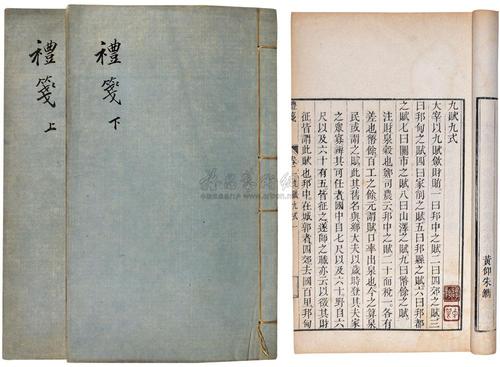 禮箋 上
禮箋 下
黃仰朱鐫
九賦九式
大宰以九賦斂財賄一曰邦中之賦二曰四郊之賦三
曰邦甸之賦四曰家削之賦五曰邦縣之賦六曰邦都
之賦七曰關市之賦八曰山澤之賦九曰幣餘之賦
注財泉穀也鄭司農云邦中之賦二十而稅一各有
差也幣餘百工之餘元謂賦口率出泉也今之算泉
民或謂之賦此其舊名與鄉大夫以歲時登其夫家
之眾寡辨其可任者國中自七尺以及六十野自六
尺以及六十有五皆征之遂師之職亦云以徵其財
征皆謂此賦也邦中在城郭者四郊去國百里邦甸